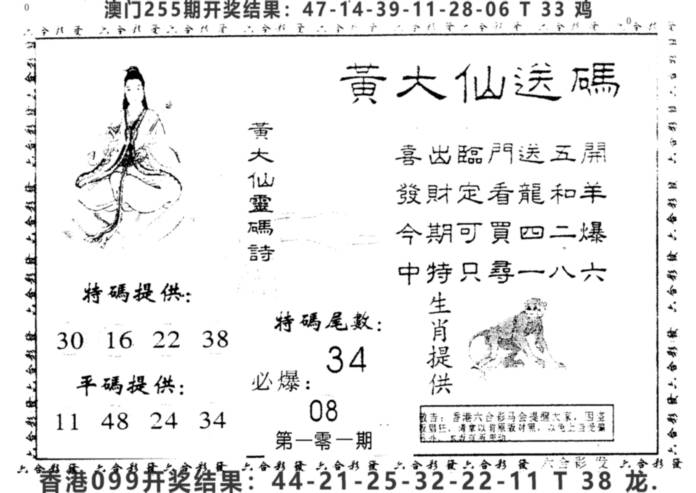 澳门255期开奖结果：47-14-39-11-28-06 T 33 鸡
黃大仙送碼
黃大仙靈碼詩
喜出臨門送五開
發財定看龍和羊
今期可買四二爆
中特只尋一八六
特碼提供：
30 16 22 38
平碼提供：
11 48 24 34
特碼尾數：
34
必爆：
08
第一零一期
生肖提供
敬告：香港六合彩马会提醒大家，
香港099开奖结果：44-21-25-32-22-11 T 38 龙.